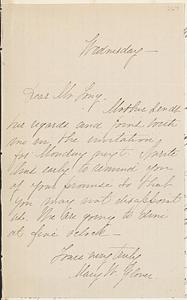 Wednesday—
Dear Mr Long.
Mother sends
her regards and joins with
me in the invitation
for Monday next. I write
thus early to remind you
of your promise so that
you may not disappoint
us. We are going to dine
at five o'clock—
Yours very truly
Mary W. Glover